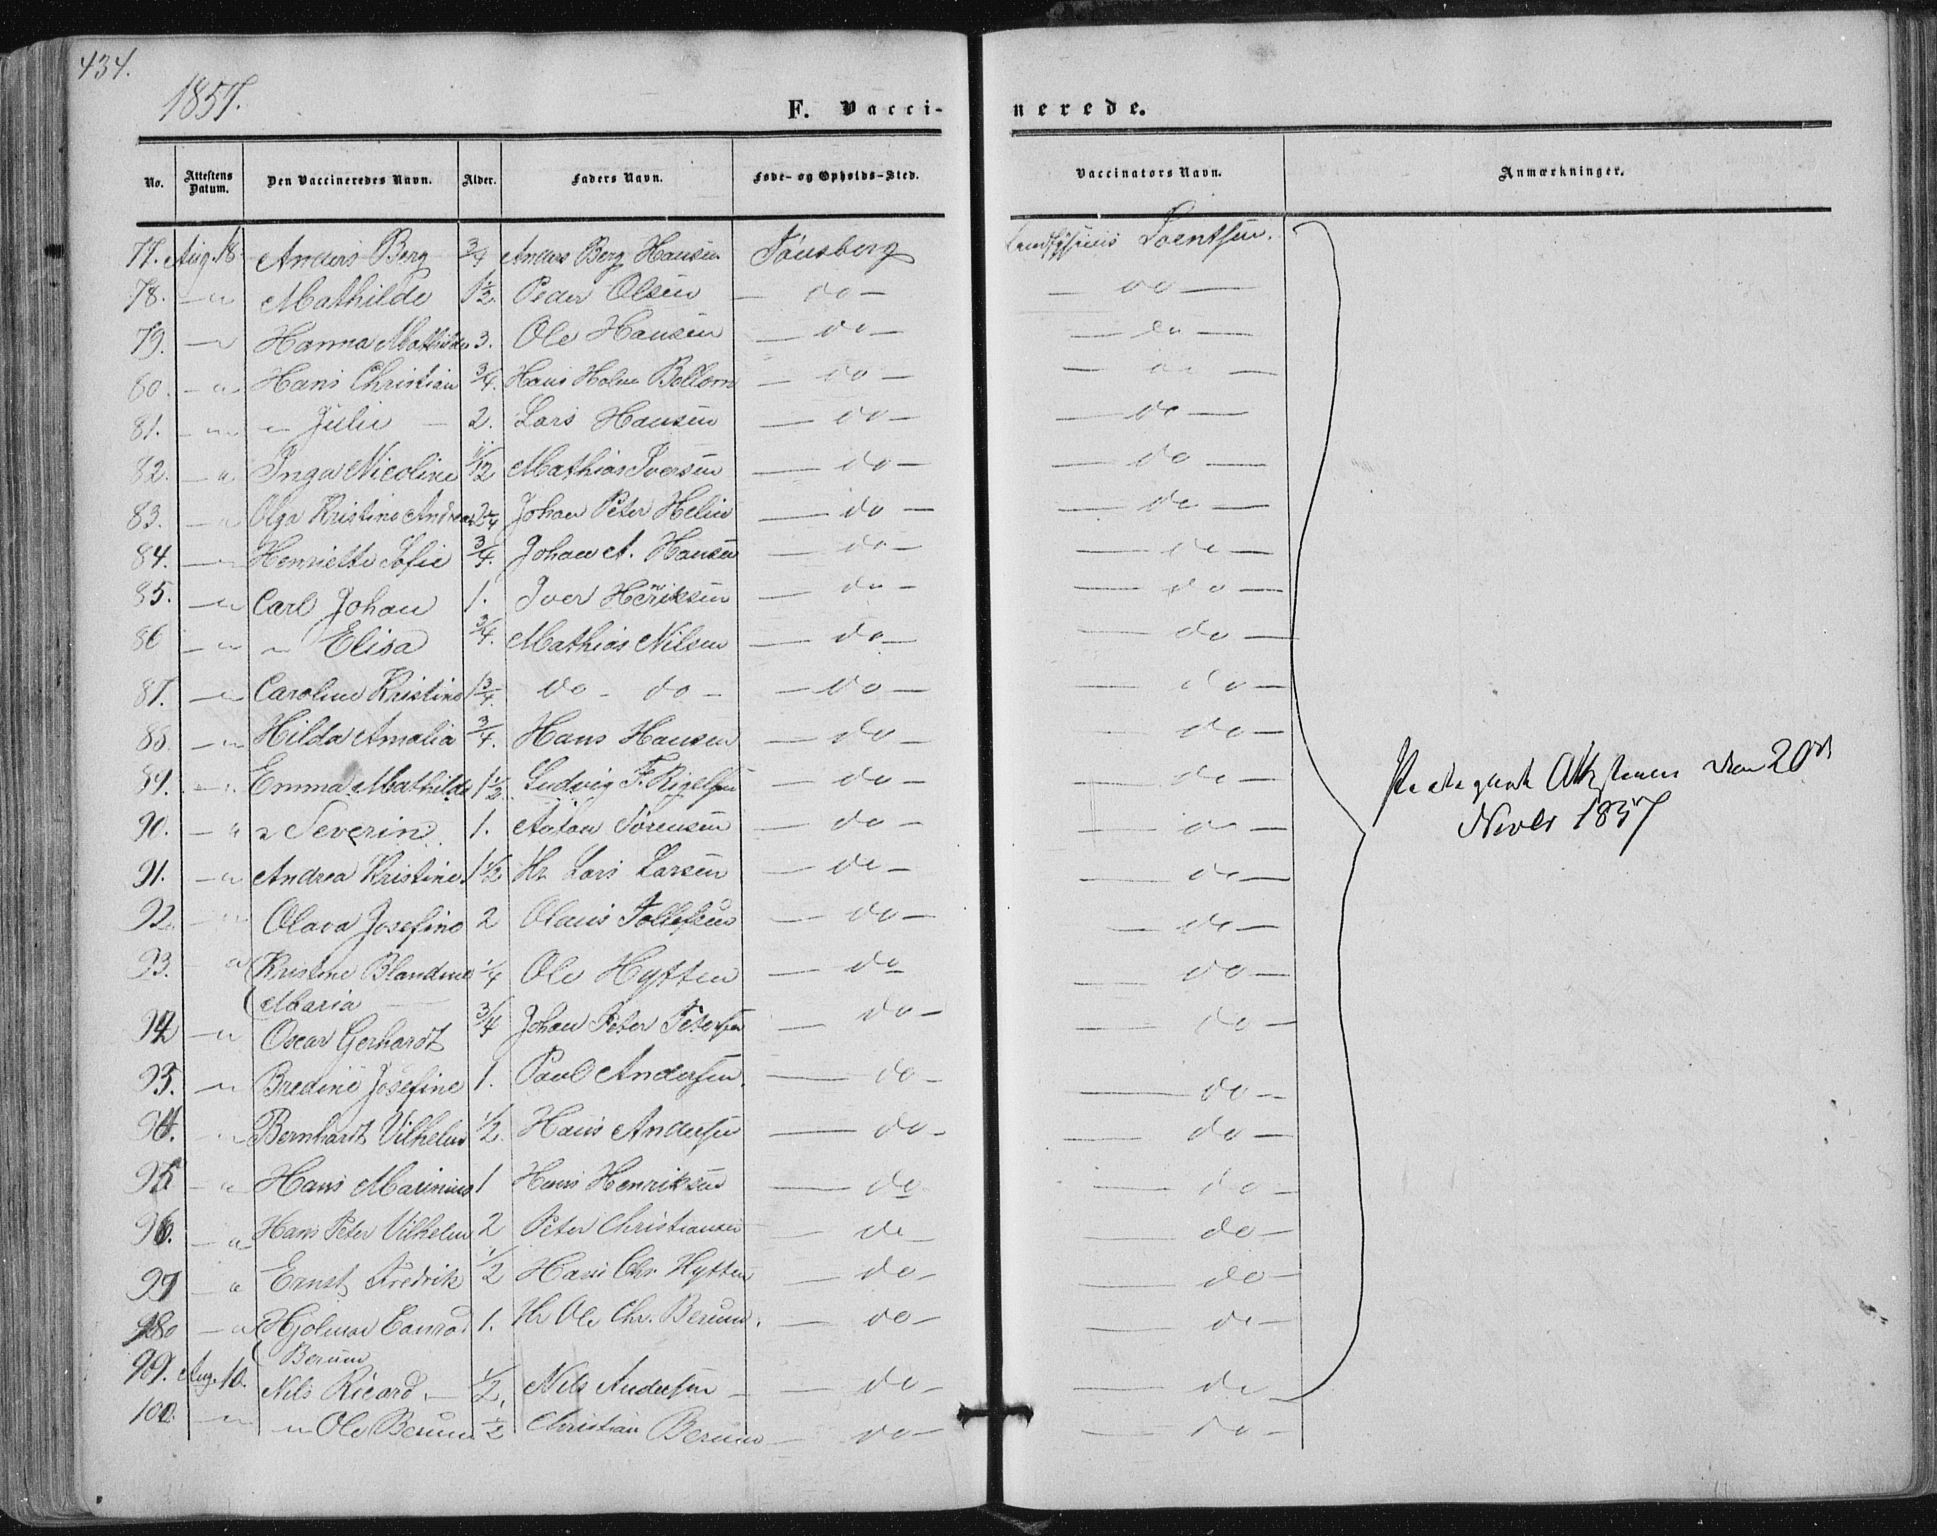 434.
1857.
F. Vaccinerede.
No. Attestens Datum. Den Vaccineredes Navn. Alder. Faders Navn. Føde- og Opholds-Sted. Vaccinators Navn. Anmærkninger.
77. Aug. 18. Anders Berg 3/4 Anders Berg Hansen Tønsberg
78. — " Mathilde 1 1/2. Peder Olsen — do — — do —
79. — " Hanna Mathilde 3. Ole Hansen — do — — do —
80. — " Hans Christian 3/4. Hans Holm — do — — do —
81. — " — " Julie — 2. Lars Hansen — do — — do —
82. — " Inga Nicoline 11/12 Mathias Iversen — do — — do —
83. — " Olga Kristine Johan Peter Helin — do — — do —
84. — " Henriette Sofie 3/4. Johan A. Hansen — do — — do —
85. — " Carl Johan 1. Iver Henriksen — do — — do —
86 — " — " Elisa 3/4. Mathias Nilsen — do — — do —
87. — " Caroline Kristine 1 3/4. do — do — — do — — do —
88. — " Hilda Amalia 3/4. Hans Hansen — do — — do —
89. — " Emma Mathilde 1 1/2. Ludvig F. — do — — do —
90. — " " Severin 1. Anton Sørensen — do — — do —
91. — " Andrea Kristine 1 1/2 Hr. Lars Larsen — do — — do —
92. — " Olava Josefine 2 Olaus Tollefsen — do — — do —
93. " Kristine Blandine 1/4 Ole Hytten — do — do —
Maria —
94 — " Oscar Gerhardt 3/4 Johan Peter Petersen — do — — do —
95. — " Bredine Josefine 1. Paul Andersen. — do — — do —
94. — " Bernhardt Vilhelm 1/2. Hans Andersen — do — — do —
95 — " Hans Marinius 1 Hans Henriksen — do — — do —
96. — " Hans Peter Vilhelm 2 Peter Christiansen — do — — do —
97 — " Ernst Fredrik 1/2 Hans Chr. Hytten — do — — do —
98 — " Hjalmar Conrad 1. Hr Ole Chr. Berum. — do — — do —
Berum
99. Aug. 10. Nils Ricard. — 1/2. Nils Andersen — — do — — do —
100. — " — " Ole Berum 1/2 Christian Berum — do — — do —
den 20de
Novbr 1857